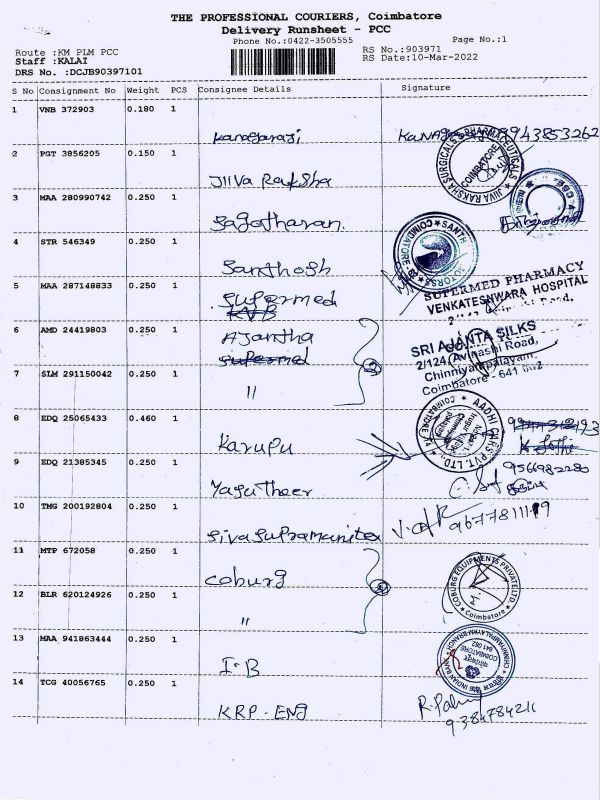 THE PROFESSIONAL COURIERS, Coimbatore
Delivery Runsheet - PCC
Phone No.:0422-3505555 Page No.:1
Route :KM PLM PCC RS No.:903971
Staff :KALAI RS Date:10-Mar-2022
DRS No. :DCJB90397101
S No Consignment No Weight PCS Consignee Details Signature
1 VNB 372903 0.180 1
Kanagaraj 8943853262
2 PGT 3856205 0.150 1
JIIVA RAKSHA SURGICALS & PHARMACEUTICALS COIMBATORE
Jiiva Raksha
3 MAA 280990742 0.250 1
Sagatharan.
4 STR 546349 0.250 1
SANTH MOTORSS COIMBATORE
Santhosh
5 MAA 287148833 0.250 1
SUPERMED PHARMACY
VENKATESHWARA HOSPITAL
Supermed
6 AMD 24419803 0.250 1
Ajantha
Supermed
SRI AJANTA SILKS
2/124, Avinashi Road,
Chinniyampalayam.
Coimbatore - 641 062
7 SLM 291150042 0.250 1
"
8 EDQ 25065433 0.460 1
AADHI CARS PVT. LTD.
Karupu
9 EDQ 21385345 0.250 1
9566982280
Yasutheer
10 TMG 200192804 0.250 1
Sivasupramaniya 9677811119
11 MTP 672058 0.250 1
Coburg
COBURG EQUIPMENTS PRIVATE LTD Coimbatore
12 BLR 620124926 0.250 1
"
13 MAA 941863444 0.250 1
INDIAN BANK CHINNIYAMPALAYAM BRANCH COIMBATORE 641 062
I-B
14 TCG 40056765 0.250 1
KRP. ENG
9384784211